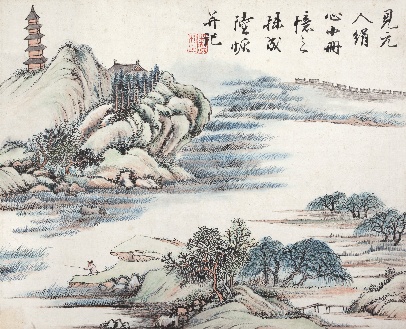 見元
人絹
心小冊
憶之
稬成
陸恢
并记